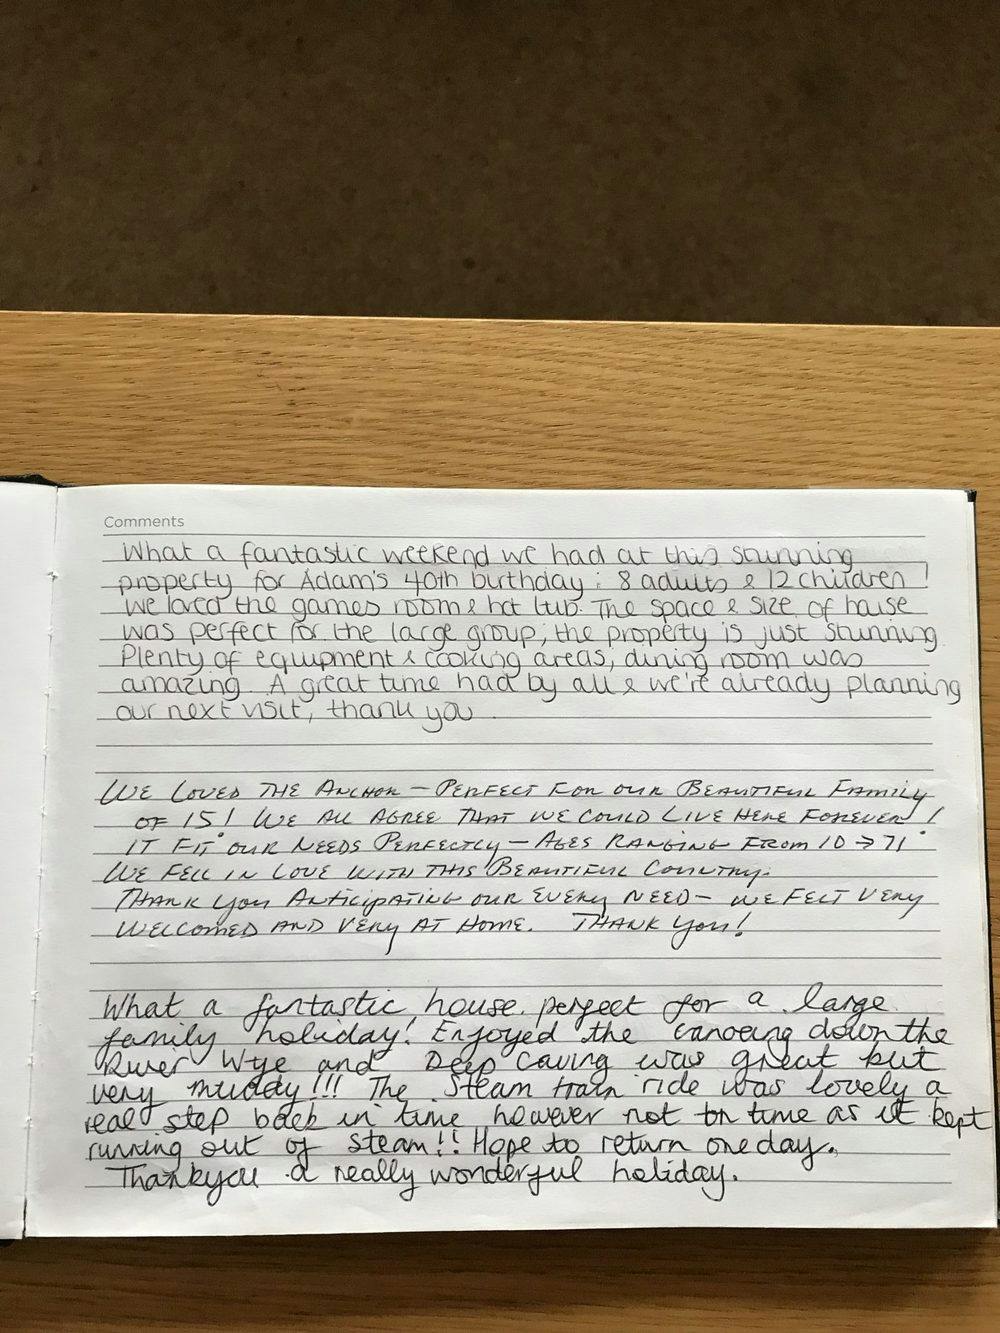 Comments
What a fantastic weekend we had at this stunning
property for Adam's 40th birthday : 8 adults & 12 children !
We loved the games room & hot tub. The space & size of house
was perfect for the large group, the property is just stunning.
Plenty of equipment & cooking areas, dining room was
amazing. A great time had by all & we're already planning
our next visit, thank you .
WE LOVED THE ANCHOR – PERFECT FOR OUR BEAUTIFUL FAMILY
OF 15! WE ALL AGREE THAT WE COULD LIVE HERE FOREVER!
IT FIT OUR NEEDS PERFECTLY – AGES RANGING FROM 10 → 71
WE FELL IN LOVE WITH THIS BEAUTIFUL COUNTRY.
THANK YOU ANTICIPATING OUR EVERY NEED – WE FELT VERY
WELCOMED AND VERY AT HOME. THANK YOU!
What a fantastic house, perfect for a large
family holiday! Enjoyed the canoeing down the
River Wye and Deep Caving was great but
very muddy!!! The Steam train ride was lovely a
real step back in time however not on time as it kept
running out of steam!! Hope to return one day.
Thankyou a really wonderful holiday.